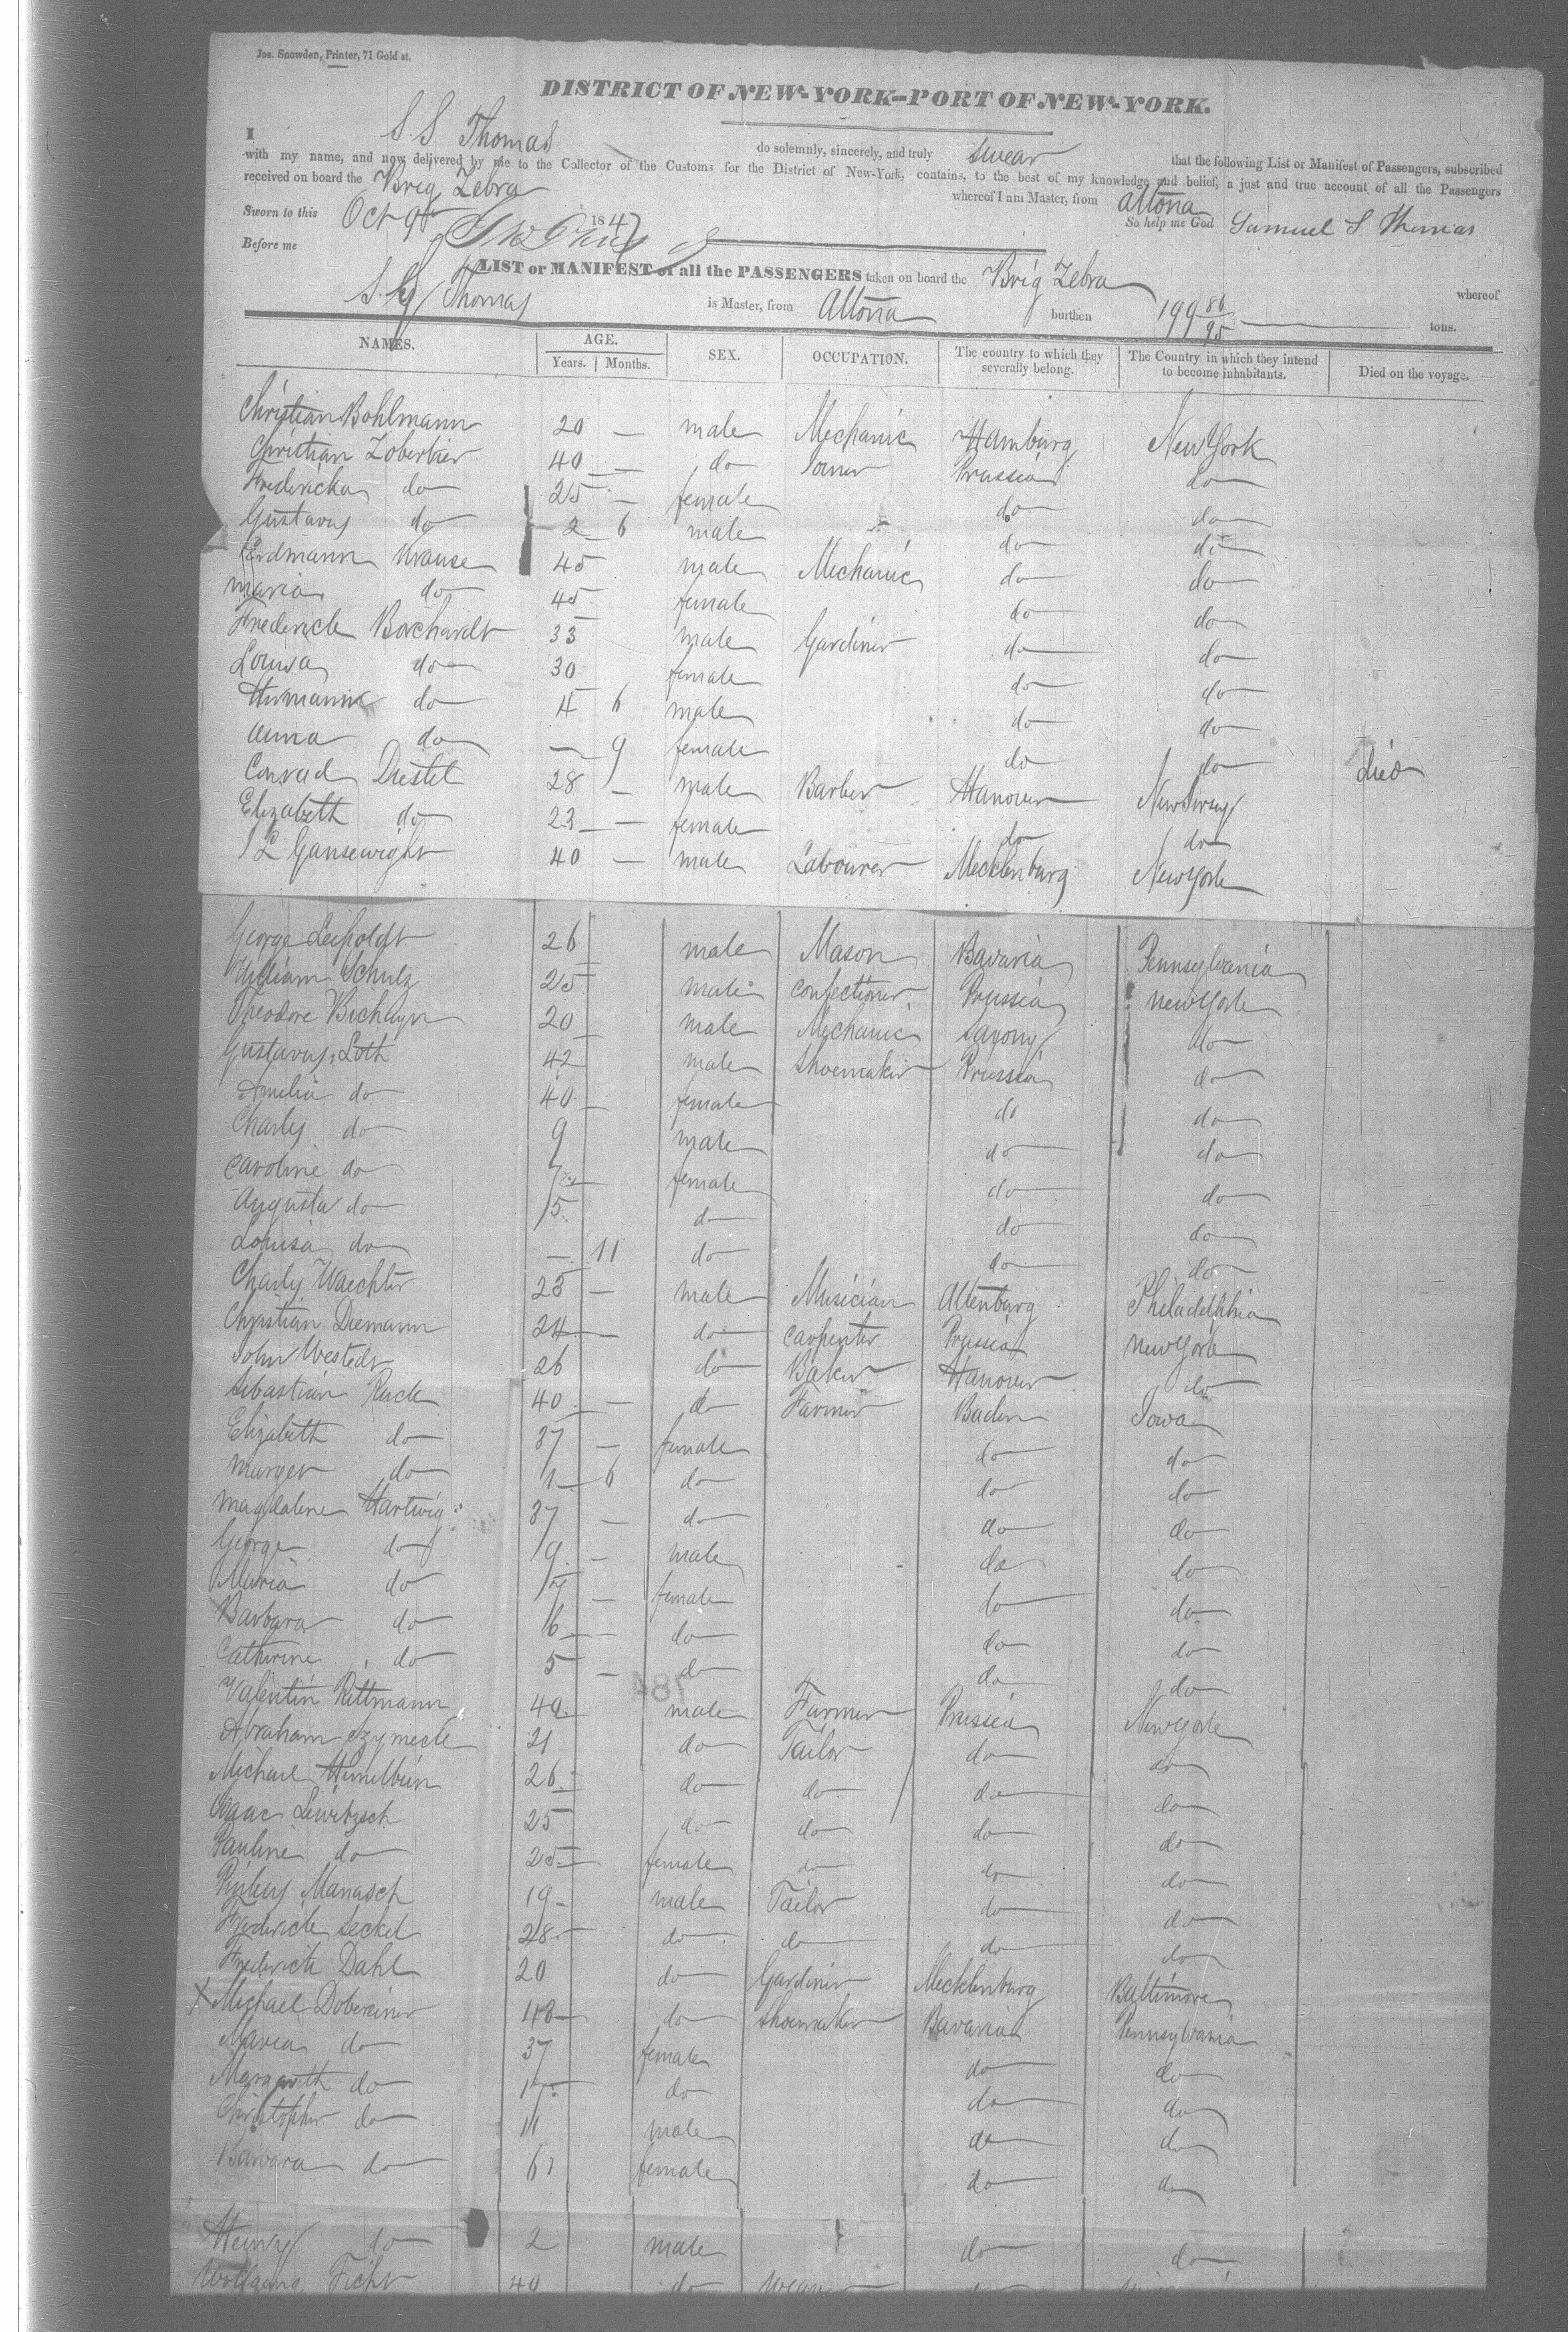 Jos. Snowden, Printer, 71 Gold st.
DISTRICT OF NEW-YORK—PORT OF NEW-YORK.
I S. S Thomas do solemnly, sincerely, and truly swear that the following List or Manifest of Passengers, subscribed
with my name, and now delivered by me to the Collector of the Customs for the District of New-York, contains, to the best of my knowledge and belief, a just and true account of all the Passengers
received on board the Brig Zebra whereof I am Master, from Altona
Sworn to this Oct 9 1847 So help me God Samuel S Thomas
Before me
LIST or MANIFEST of all the PASSENGERS taken on board the Brig Zebra whereof
S. S Thomas is Master, from Altona burthen 199 86/95 tons.
NAMES. AGE. SEX. OCCUPATION. The country to which they severally belong. The Country in which they intend to become inhabitants. Died on the voyage.
Years. Months.
Christian Bohlmann 20 — male Mechanic Hamburg New York
Christian Zobertier 40 — do Joiner Prussia do
Fredericka do 25 — female do do
Gustavus do 2 6 male do do
Erdmann Krause 45 male Mechanic do do
Maria do 45 female do do
Frederick Borchardt 33 male Gardiner do do
Louisa do 30 female do do
Hermann do 4 6 male do do
Anna do — 9 female do do died
Conrad Diestel 28 — male Barber Hanover New Jersey
Elizabeth do 23 — female do do
L Gansewight 40 — male Labourer Mecklenburg New York
George Leipoldt 26 male Mason Bavaria Pennsylvania
William Schulz 25 male Confectioner Prussia New York
Theodore 20 male Mechanic Saxony do
Gustavus Loth 42 male Shoemaker Prussia do
Amelia do 40 female do do
Charly do 9 male do do
Caroline do 7 female do do
Augusta do 5 do do do
Louisa do — 11 do do do
Charly Waechter 23 — male Musician Altenburg Philadelphia
Christian Diemann 24 — do Carpenter Prussia New York
John Westedt 26 do Baker Hanover do
Sebastian Ruck 40 — do Farmer Baden Iowa
Elizabeth do 37 — female do do
Marget do 1 6 do do do
Magdalene Hartwig 37 — do do do
George do 9 — male do do
Maria do 17 — female do do
Barbara do 6 — do do do
Catherine do 5 — do do do
Valentin Rittmann 49 male Farmer Prussia New York
Abraham 21 do Tailor do do
Michael 26 do do do do
Isaac Lewitzsch 25 do do do do
Pauline do 25 female do do do
Manasch 19 male Tailor do do
Frederick Seckel 28 do do do do
Frederick Dahl 20 do Gardiner Mecklenburg Baltimore
X Michael Dobereiner 48 do Shoemaker Bavaria Pennsylvania
Maria do 37 female do do
Margareth do 17 do do do
Christopher do 11 male do do
Barbara do 6 female do do
Henry do 2 male do do
Wolfgang Ficht 40 do Weaver do